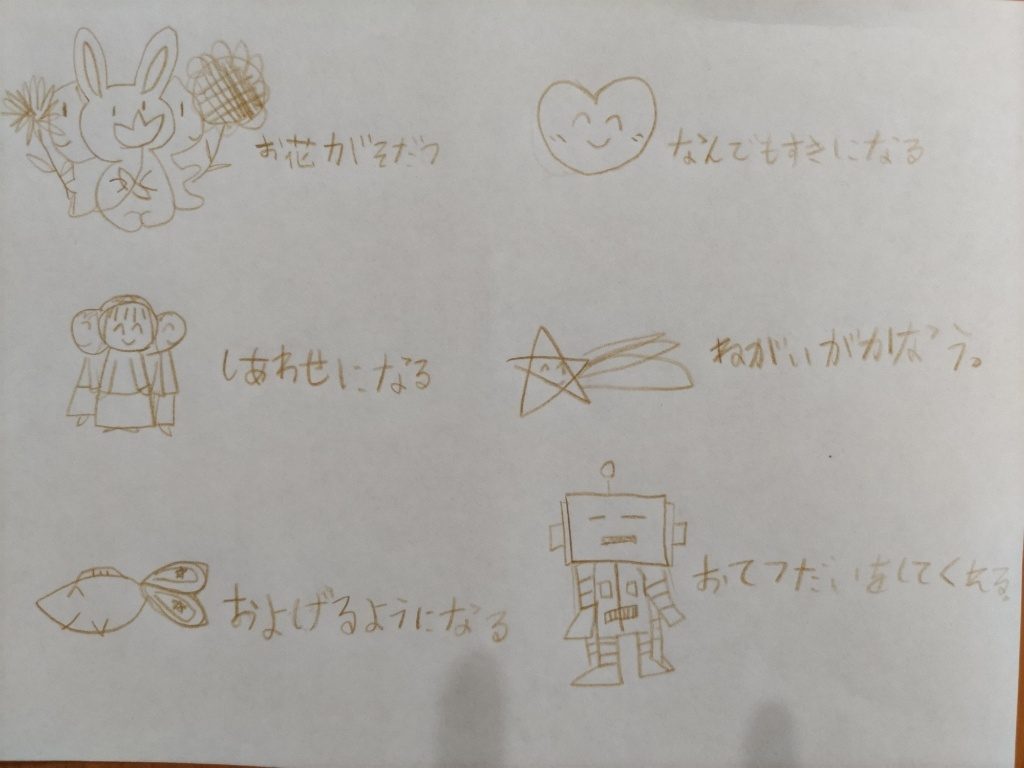 お花がそだつ
なんでもすきになる
しあわせになる
ねがいがかなう。
およげるようになる
おてつだいをしてくれる